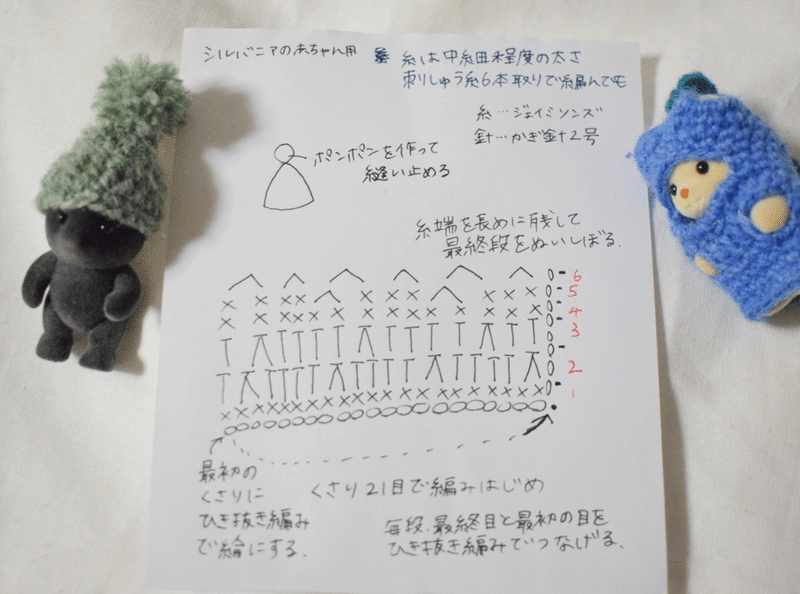 シルバニアの赤ちゃん用
糸は中細程度の太さ
刺しゅう糸6本取りで編んでも
糸…ジェイミソンズ
針…かぎ針2号
ポンポンを作って
縫い止める
糸端を長めに残して
最終段をぬいしぼる.
6
5
4
3
2
1
最初の
くさりに
ひき抜き編み
で輪にする.
くさり21目で編みはじめ
毎段、最終目と最初の目を
ひき抜き編みでつなげる、